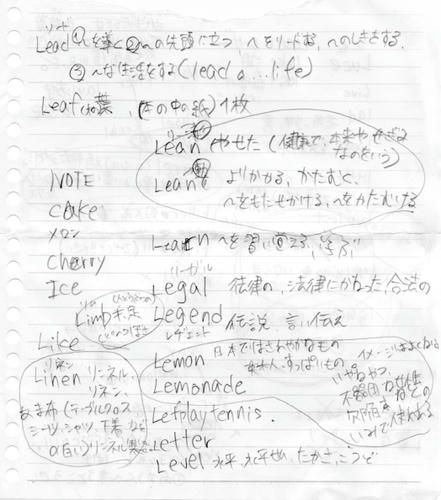 リード
Lead ①を導く②の先頭に立つ ～をリードする、～のしきをする、
③～な生活をする(lead a...life)
Leaf 葉、(本の中の紙)1枚
リーン
Lean やせた(健康で、本来やせぎみ
なのをいう)
Lean よりかかる、かたむく、
～をもたせかける、～をかたむける
NOTE
cake
メロン
Cherry
Ice
Like
Learn ～を習い覚える、学ぶ
リーガル
Legal 法律の、法律にかなった、合法の
Legend 伝説、言い伝え
レヂェンド
Limb 手足
Linen リンネル、
リネン、
あま布(テーブルクロス
シーツ、シャツ、下着など
の白い)リンネル製品
Lemon 日本ではさわやかなもの
すっぱいもの
イメージはよくない
Lemonade
いやなやつ、
不器用な女性
などの
欠陥車
いみで使われる
Lefplaytennis.
Letter
Level 水平、水平せん、たかさ、こうど